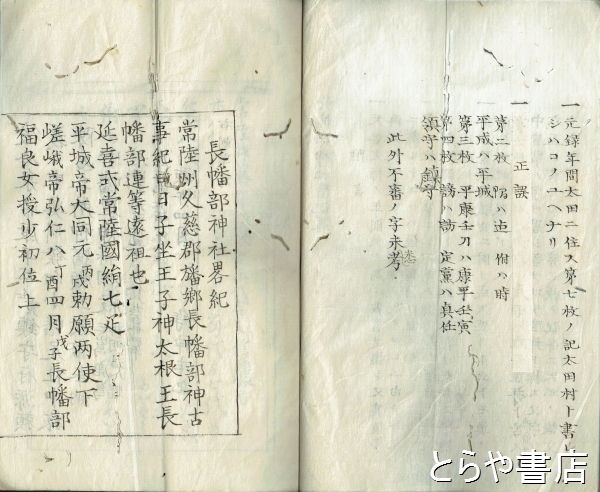 一元録年間太田ニ住ス第七枚ノ記太田村ト書シ
シハコノユヘナリ
一 正誤
第二枚 ハ迠 附ハ時
平成ハ平城
第三枚 平康壬刀ハ康平壬寅
第四枚 謗ハ訪 定黨ハ真任
領守ハ鎮守
此外不審ノ字未考
長幡部神社畧紀
常陸州久慈郡旛郷長幡部神古
事紀曰日子坐王子神太根王長
幡部連等遠祖也
延喜式常陸國絹七疋
平城帝大同元丙戌勅願两使下
嵯峨帝弘仁八丁酉四月戊子長幡部
福良女授少初位上
とらや書店